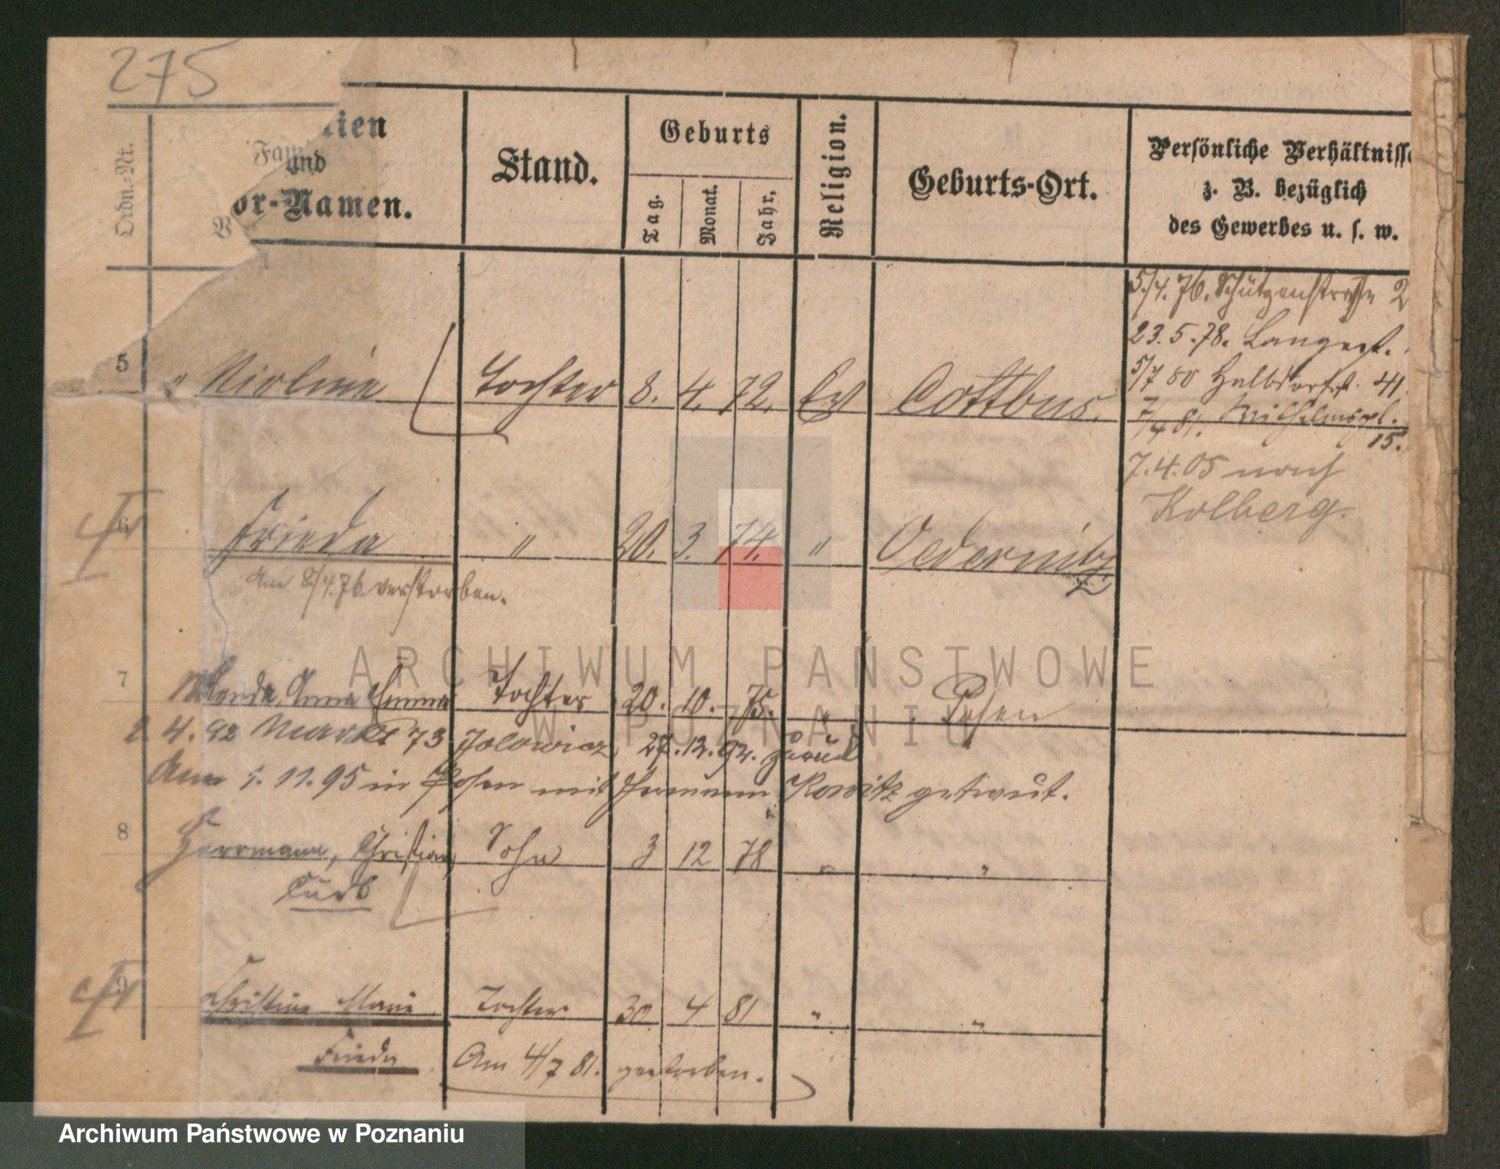 275
Ordn.-Nr.
Familien
und
Vor-Namen.
Stand.
Geburts
Tag.
Monat.
Jahr.
Religion.
Geburts-Ort.
Persönliche Verhältnisse
z. B. bezüglich
des Gewerbes u. s. w.
5/4. 76. Schützenstrasse 2
23. 5. 78. Langest.
5/7 80 Halbdorfst. 41.
7/4 81. Wilhelmspl.
15.
7. 4. 05 nach
Kolberg.
5 " Tochter 8. 4. 72. Ev Cottbus.
6 Frieda " 20. 3. 74. " Oedernitz
Am 8/4. 76. verstorben.
7 Anna Emma Tochter 20. 10. 75. " Posen
2. 4. 92 Markt 73 Jolowicz, 27. 12. 92. zurück
Am 1. 11. 95 in Posen mit Hermann getraut.
8 Herrmann, Christian, Sohn 3 12 78 " "
9 Christine Marie Tochter 30 4 81 " "
Frieda Am 4/7 81. gestorben.
ARCHIWUM PAŃSTWOWE
W POZNANIU
Archiwum Państwowe w Poznaniu